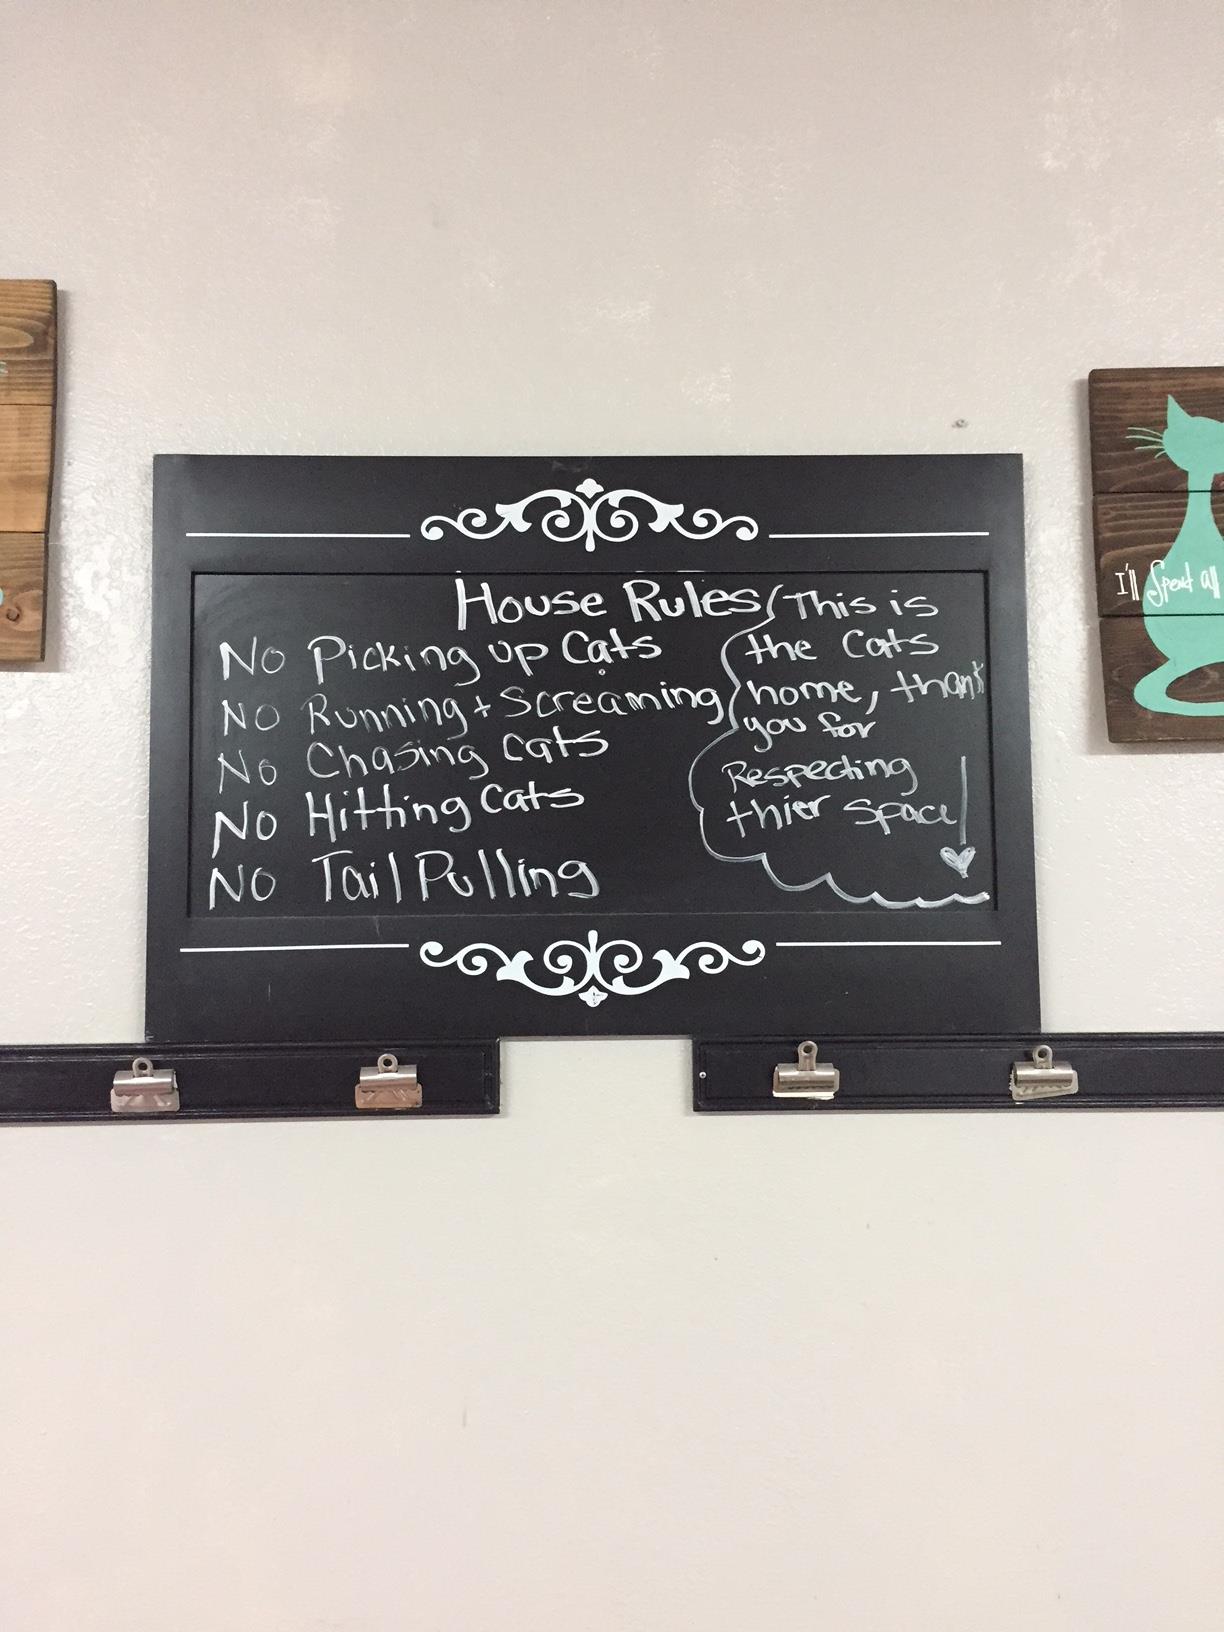 House Rules
No Picking up Cats
No Running + Screaming
No Chasing cats
No Hitting Cats
No Tail Pulling
This is
the Cats
home, thank
you for
Respecting
thier Space!
I'll Spend all